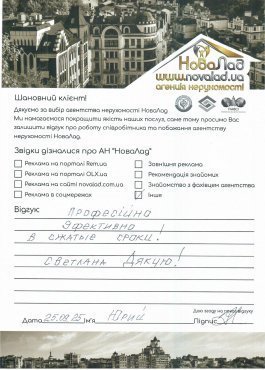 НоваЛад
www.novalad.ua
агенція нерухомості
Шановний клієнт!
Дякуємо за вибір агентства нерухомості НоваЛад
Ми намагаємося покращити якість наших послуг, саме тому просимо Вас
залишити відгук про роботу співробітника та побажання агентству
нерухомості НоваЛад.
Звідки дізналися про АН "НоваЛад"
Реклама на порталі Rem.ua
Зовнішня реклама
Реклама на порталі OLX.ua
Рекомендація знайомих
Реклама на сайті novalad.com.ua
Знайомство з фахівцем агентства
Реклама в соцмережах
Інше
Відгук
Професійно
Эфективно!
В сжатые сроки!
Светлана Дякую!
Дата 25.09.25 ім'я Юрий Підпис